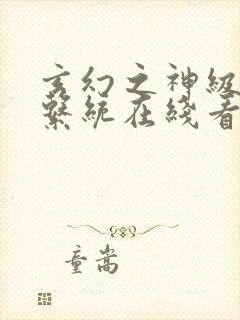 玄幻之神级
系统在线看
童嵩